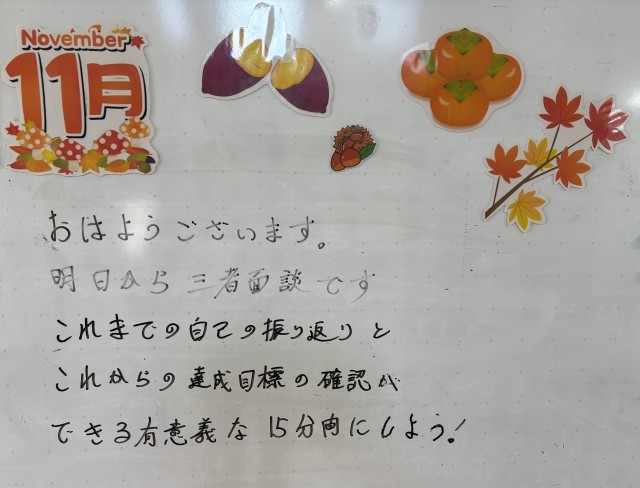 November
11月
おはようございます。
明日から三者面談です
これまでの自己の振り返りと
これからの達成目標の確認が
できる有意義な15分間にしよう!